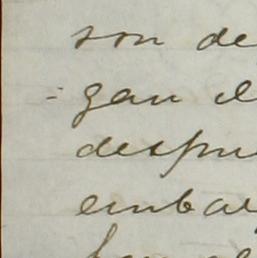 son de
gan el
despu
embar